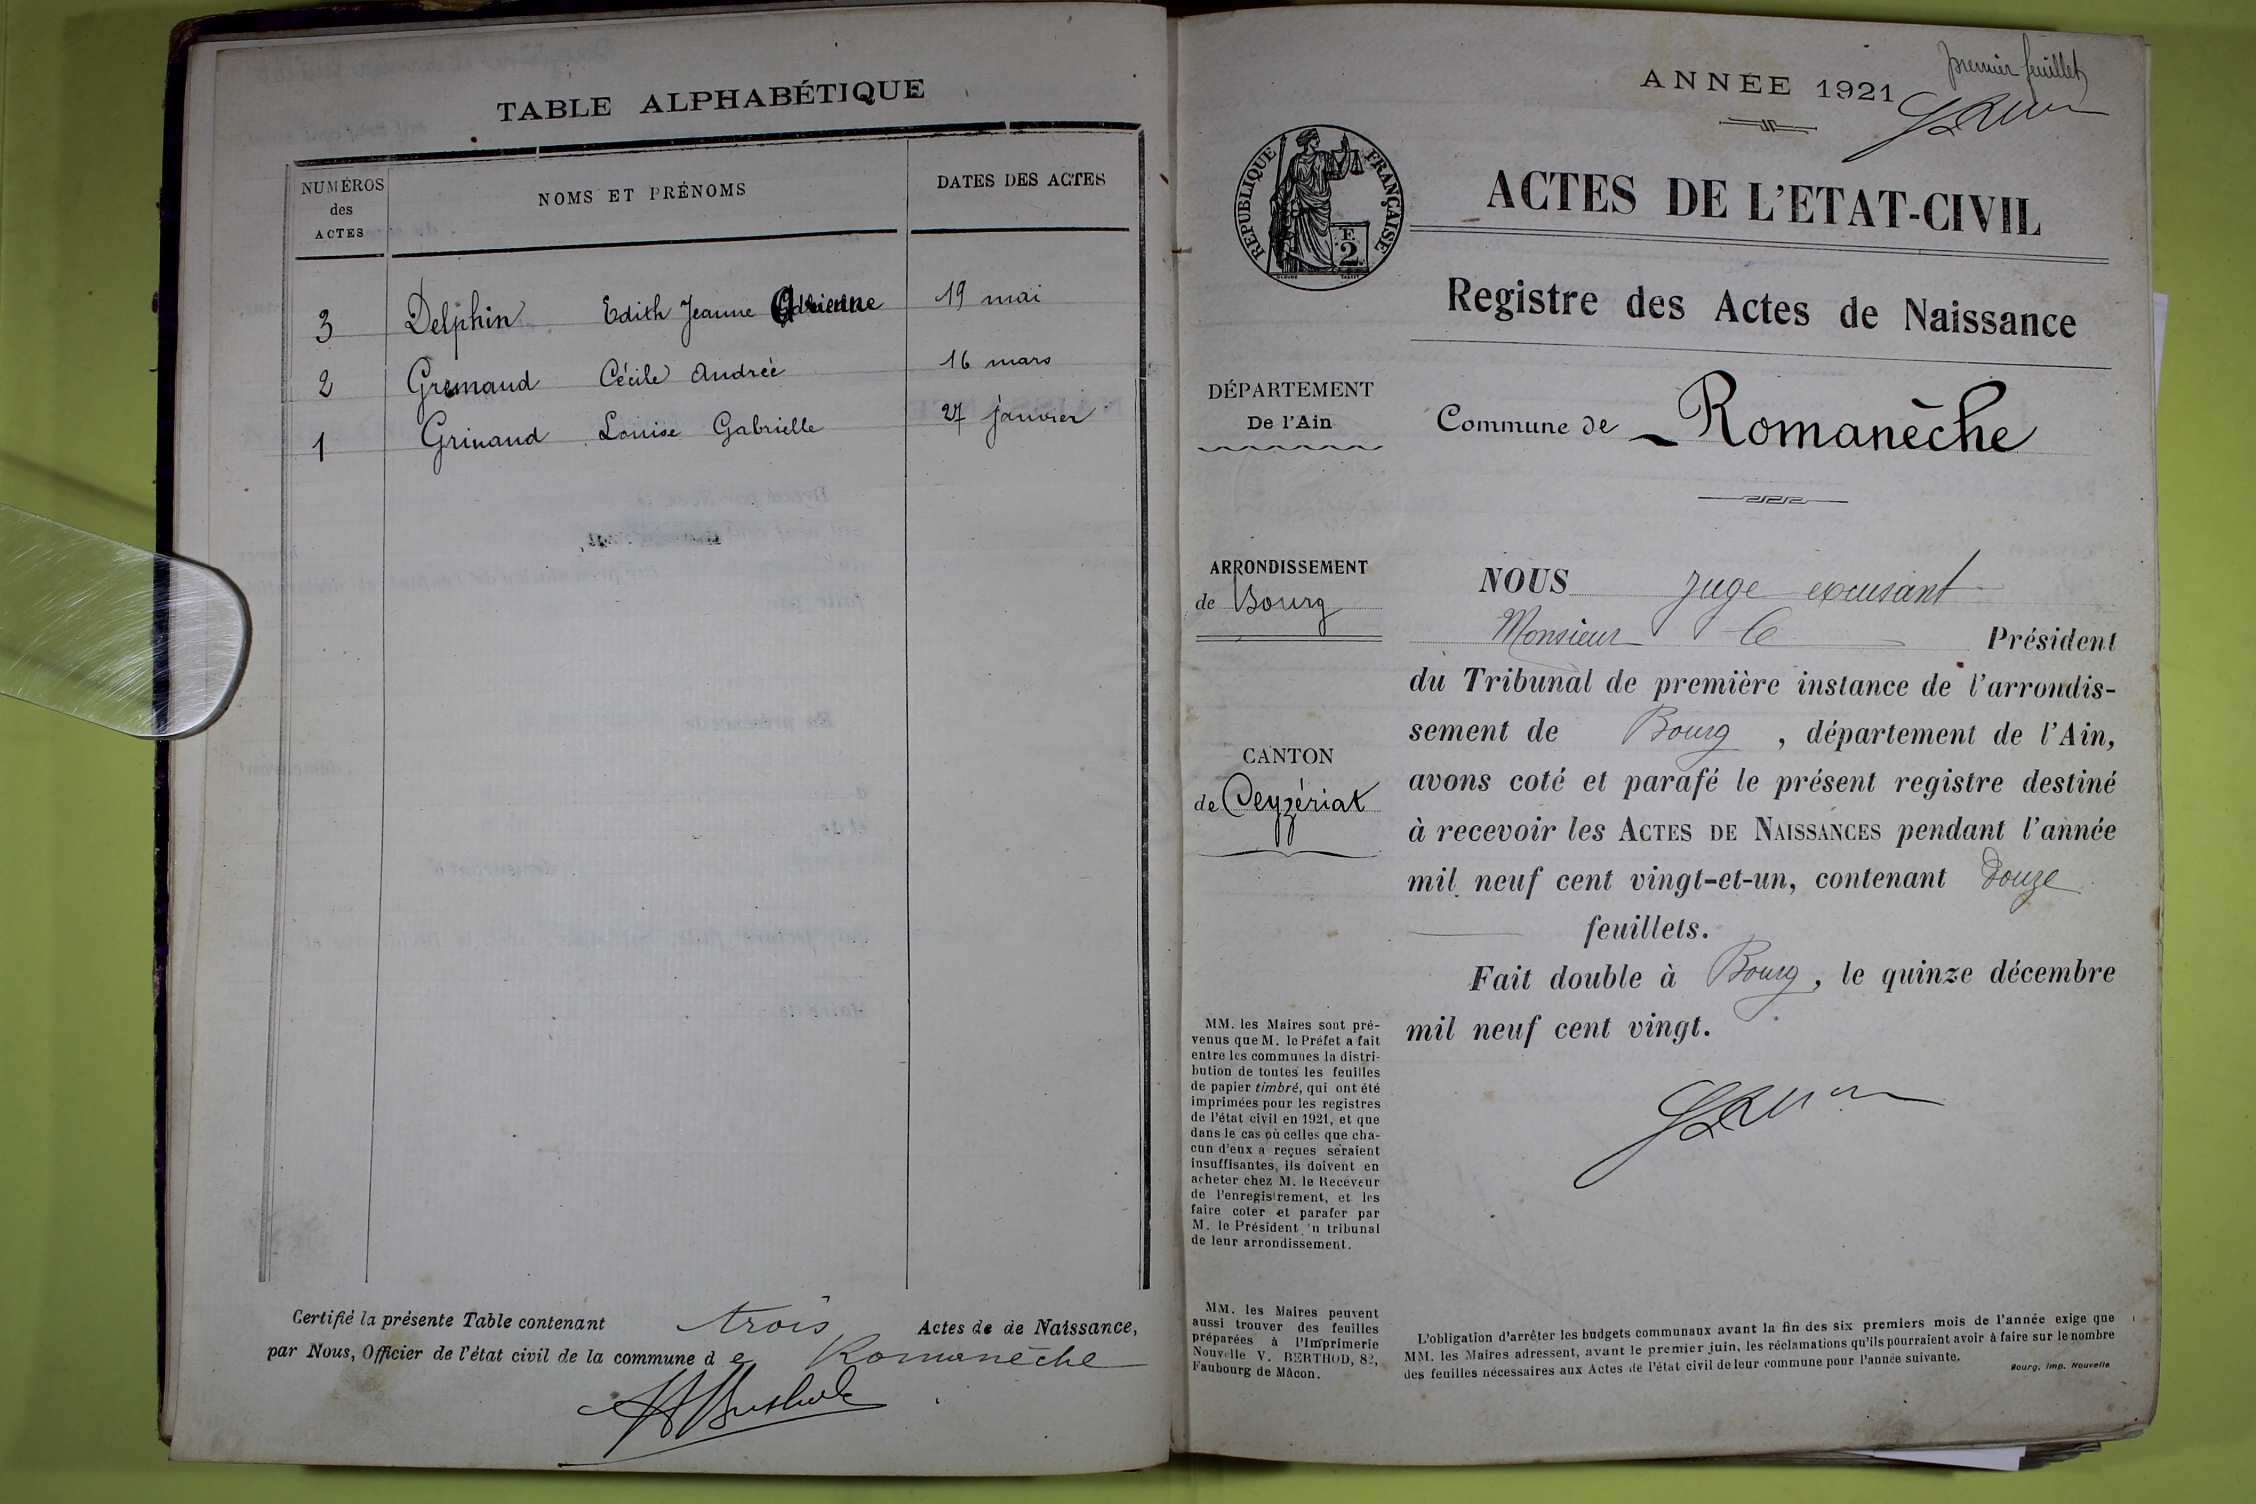 TABLE ALPHABÉTIQUE
NUMÉROS
des
ACTES
NOMS ET PRÉNOMS
DATES DES ACTES
3 Delphin Edith Jeanne Adrienne 19 mai
2 Gremaud Cécile Andrée 16 mars
1 Grinand Louise Gabrielle 27 janvier
Certifié la présente Table contenant trois Actes de de Naissance,
par Nous, Officier de l'état civil de la commune de Romanèche
premier feuillet
ANNÉE 1921
RÉPUBLIQUE FRANÇAISE
F.
2
ACTES DE L'ETAT-CIVIL
Registre des Actes de Naissance
DÉPARTEMENT
De l'Ain
Commune de Romanèche
ARRONDISSEMENT
de Bourg
CANTON
de Ceyzériat
NOUS juge excusant
Monsieur le Président
du Tribunal de première instance de l'arrondis-
sement de Bourg, département de l'Ain,
avons coté et parafé le présent registre destiné
à recevoir les ACTES DE NAISSANCES pendant l'année
mil neuf cent vingt-et-un, contenant Douze
feuillets.
Fait double à Bourg, le quinze décembre
mil neuf cent vingt.
MM. les Maires sont pré-
venus que M. le Préfet a fait
entre les communes la distri-
bution de toutes les feuilles
de papier timbré, qui ont été
imprimées pour les registres
de l'état civil en 1921, et que
dans le cas où celles que cha-
cun d'eux a reçues seraient
insuffisantes, ils doivent en
acheter chez M. le Receveur
de l'enregistrement, et les
faire coter et parafer par
M. le Président 'u tribunal
de leur arrondissement.
MM. les Maires peuvent
aussi trouver des feuilles
préparées à l'Imprimerie
Nouvelle V. BERTHOD, 82,
Faubourg de Mâcon.
L'obligation d'arrêter les budgets communaux avant la fin des six premiers mois de l'année exige que
MM. les Maires adressent, avant le premier juin, les réclamations qu'ils pourraient avoir à faire sur le nombre
des feuilles nécessaires aux Actes de l'état civil de leur commune pour l'année suivante.
Bourg, Imp. Nouvelle